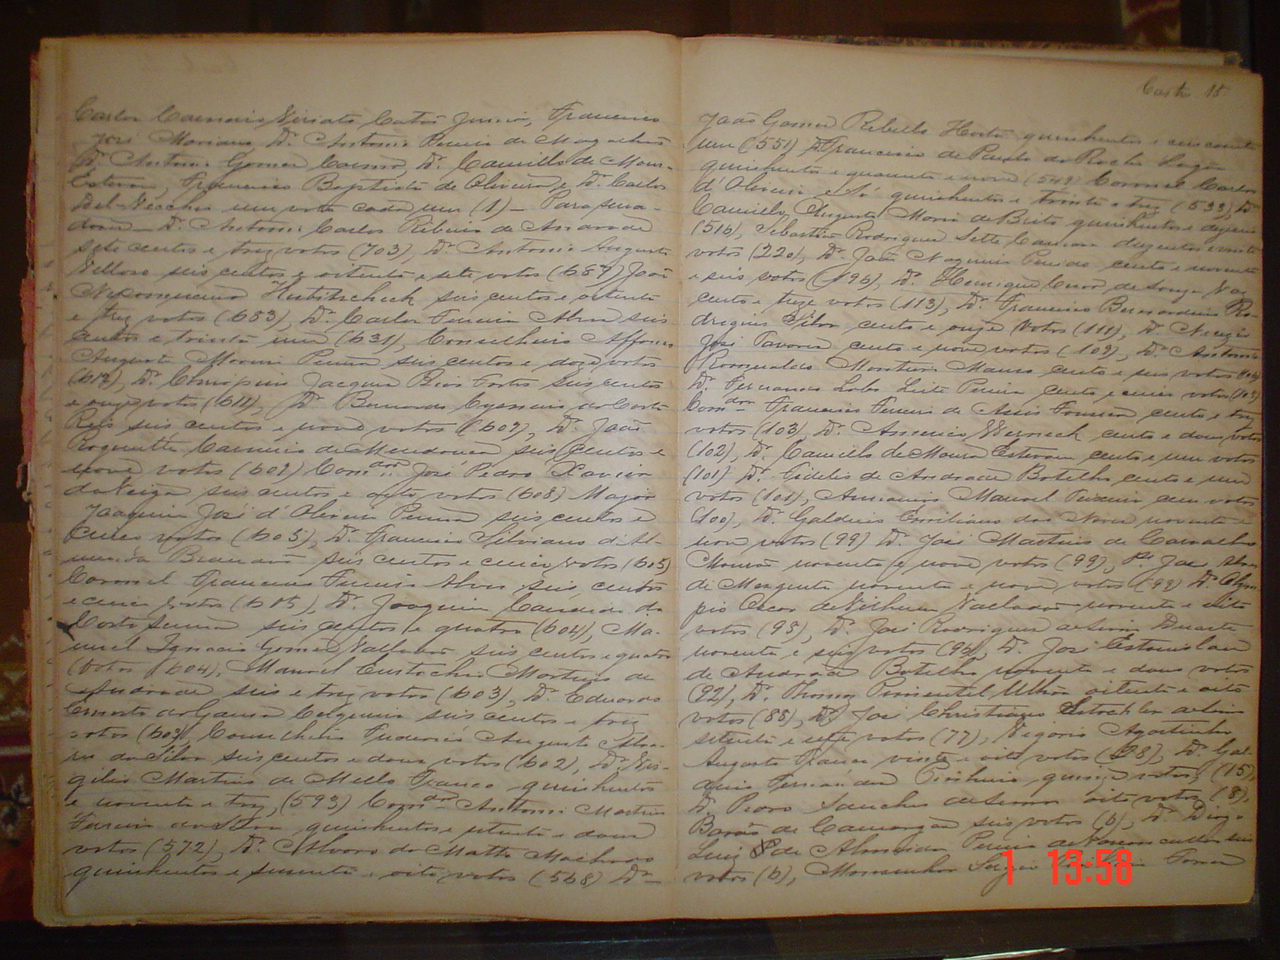 Carlos Carneiro Viriato Catão Junior, Francisco
José Moreira, Dr. Antonio Pereira de Magalhães
Dr. Antonio Gomes Dr. Camillo de Moura
Estevam, Francisco Baptista de Oliveira, Dr. Carlos
Del Vecchio um voto cada um (1) — Para sena-
dores — Dr. Antonio Carlos Ribeiro de Andrada
sete centos e trez votos (703), Dr. Antonio Augusto
Velloso seis centos e oitenta e sete votos (687) João
Nepomuceno Kubitscheck seis centos e
e trez votos (653), Dr. Carlos Ferreira Alves seis
centos e trinta um (631), Conselheiro Affonso
Augusto Moreira Penna seis centos e doze votos
(612), Dr. Chrispim Jacques Bias Fortes seis centos
e onze votos (611), Dr. Bernardo Cysneiro da Costa
Reis seis centos e nove votos (609), Dr. João
Roquette Carneiro de Mendonça seis centos e
nove votos (609) Comdor José Pedro Xavier
da Veiga seis centos e oito votos (608) Major
Joaquim José d'Oliveira Penna seis centos e
cinco votos (605), Dr. Francisco Silviano d'Al-
meida Brandão seis centos e cinco votos (605)
Coronel Francisco Ferreira Alves seis centos
e cinco votos (605), Dr. Joaquim Candido da
Costa Senna seis centos e quatro (604), Ma-
nuel Ignacio Gomes Valladão seis centos e quatro
votos (604), Manoel Eustachio Martins de
Andrade seis e trez votos (603), Dr. Eduardo
Ernesto da Gama Cerqueira seis centos e trez
votos (603) Conselheiro Frederico Augusto Alva-
res da Silva seis centos e dous votos (602), Dr. Vir-
gilio Martins de Mello Franco quinhentos
e noventa e trez, (593) Comdor Antonio Martins
Ferreira da Silva quinhentos e setenta e dous
votos (572), Dr. Alvaro da Matta Machado
quinhentos e sessenta e oito votos (568) Dr.
Castro 15
João Gomes Rebello Horta quinhentos e cincoenta
um (551), Dr. Francisco de Paula da Rocha Lagôa
quinhentos e quarenta e nove (549) Coronel Carlos
d'Oliveira e Sá quinhentos e trinta e trez (533), Dr.
Camillo Augusto Maria de Brito quinhentos e dezeseis
(516), Sebastião Rodrigues Sette Camara duzentos e vinte
votos (220), Dr. João Nogueira Penido cento e noventa
e seis votos (196), Dr. Henrique Cesar de Souza Vaz
cento e treze votos (113), Dr. Francisco Bernardino Ro-
drigues Silva cento e onze votos (111), Dr. Necesio
José Tavares cento e nove votos (109), Dr. Antonio
Romualdo Monteiro Manso cento e seis votos (106)
Dr. Fernando Lobo Leite Pereira cento e cinco votos (105)
Comdor Francisco Ferreira de Assis Fonseca cento e trez
votos (103), Dr. Americo Werneck cento e dous votos
(102), Dr. Camillo de Moura Estevam cento e um votos
(101) Dr. Fidelis de Andrade Botelho cento e um
votos (101), Manoel Teixeira cem votos
(100), Dr. Galdino Emiliano das Neves noventa e
nove votos (99) Dr. José Martins de Carvalho
Mourão noventa e nove votos (99), Pe. José Alves
de Mesquita noventa e nove votos (99) Dr. Olym-
pio Oscar de Vilhena Valladão noventa e oito
votos (98), Dr. José Rodrigues de Lima Duarte
noventa e seis votos (96), Dr. José Estanislau
de Andrade Botelho noventa e dous votos
(92), Dr. Thomaz Pimentel Ulhôa oitenta e oito
votos (88), Dr. José Christiano Stockler de Lima
setenta e sete votos (77), Vigario Agostinho
Augusto França vinte e oito votos (28), Dr. Gal-
dino Fernandes Pinheiro quinze votos, (15),
Dr. Pedro Sanches de Lemos oito votos (8)
Barão de Camargos seis votos (6), Dr. Diogo
Luiz de Almeida Pereira de Vasconcellos seis
votos (6), Monsenhor
1 13:58